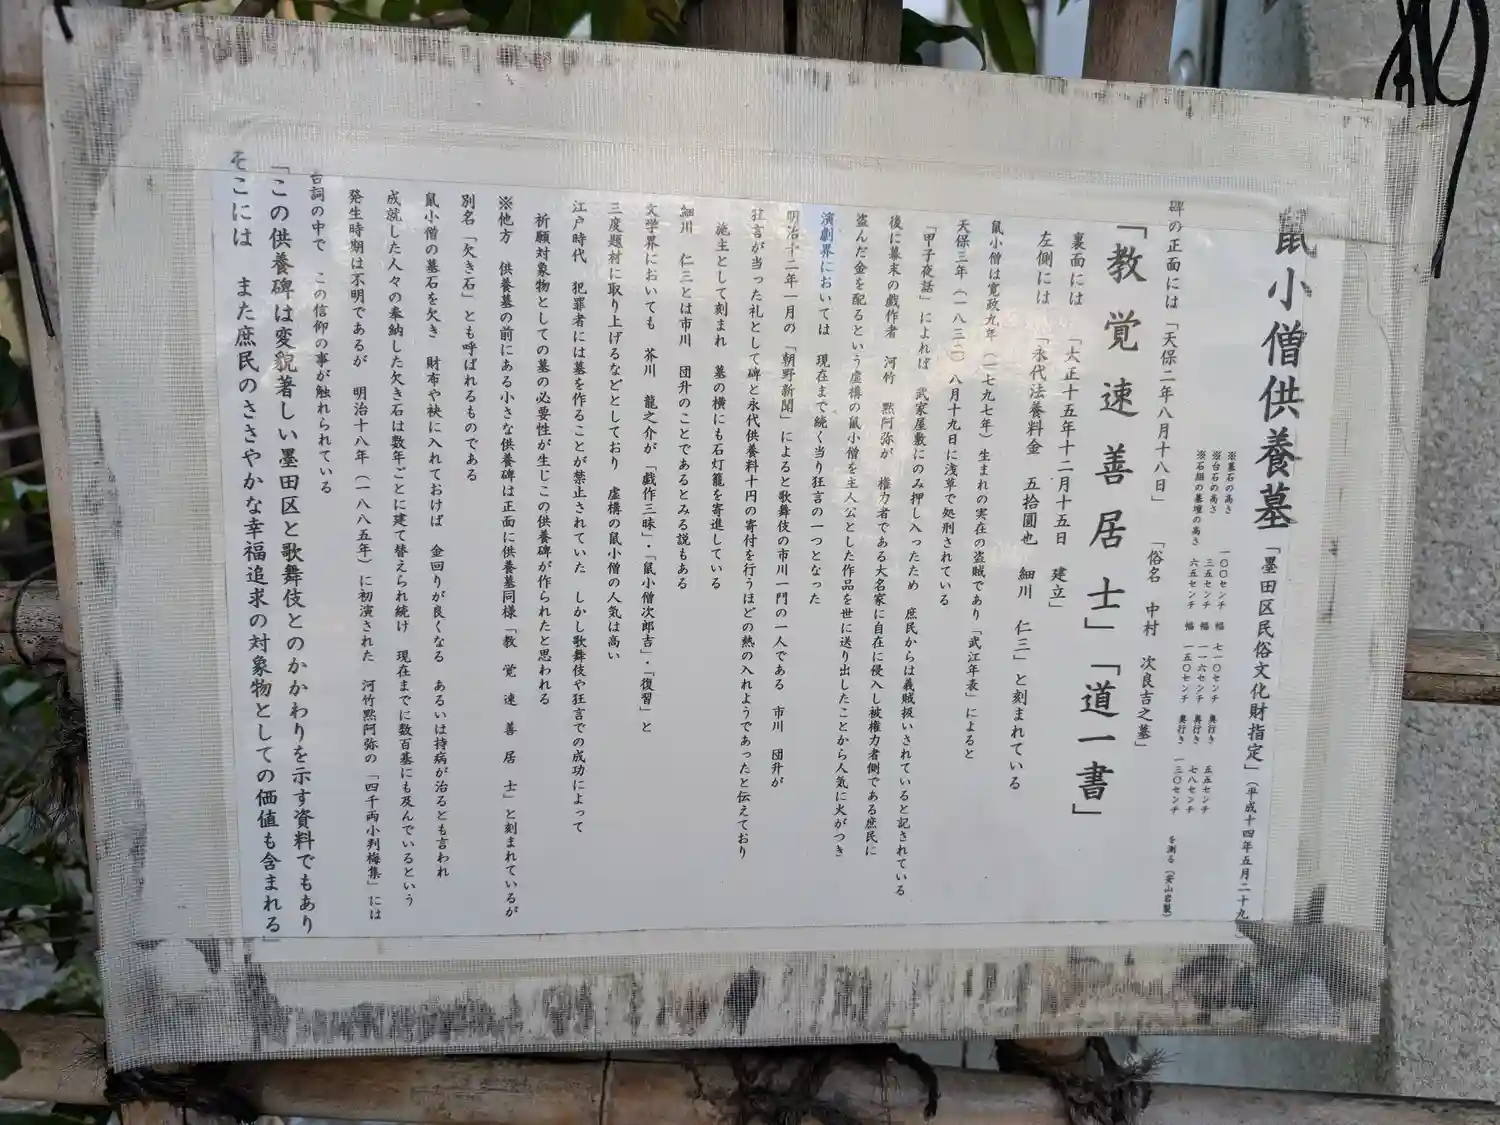 鼠小僧供養墓
「墨田区民俗文化財指定」(平成十四年五月二十九
※墓石の高さ 一〇〇センチ 幅 七一〇センチ 奥行き 五五センチ
※台石の高さ 三五センチ 幅 一一六センチ 奥行き 七八センチ
※石組の墓壇の高さ 六五センチ 幅 一五〇センチ 奥行き 一三〇センチ を測る (安山岩製)
碑の正面には 「天保二年八月十八日」 「俗名 中村 次良吉之墓」
「教覚速善居士」「道一書」
裏面には 「大正十五年十二月十五日 建立」
左側には 「永代法養料金 五拾圓也 細川 仁三」と刻まれている
鼠小僧は寛政九年(一七九七年)生まれの実在の盗賊であり「武江年表」によると
天保三年(一八三二)八月十九日に浅草で処刑されている
「甲子夜話」によれば 武家屋敷にのみ押し入ったため 庶民からは義賊扱いされていると記されている
後に幕末の戯作者 河竹 黙阿弥が 権力者である大名家に自在に侵入し被権力者側である庶民に
盗んだ金を配るという虚構の鼠小僧を主人公とした作品を世に送り出したことから人気に火がつき
演劇界においては 現在まで続く当り狂言の一つとなった
明治十二年一月の 「朝野新聞」によると歌舞伎の市川一門の一人である 市川 団升が
狂言が当った礼として碑と永代供養料十円の寄付を行うほどの熱の入れようであったと伝えており
施主として刻まれ 墓の横にも石灯籠を寄進している
細川 仁三とは市川 団升のことであるとみる説もある
文学界においても 芥川 龍之介が「戯作三昧」・「鼠小僧次郎吉」・「復習」と
三度題材に取り上げるなどとしており 虚構の鼠小僧の人気は高い
江戸時代 犯罪者には墓を作ることが禁止されていた しかし歌舞伎や狂言での成功によって
祈願対象物としての墓の必要性が生じこの供養碑が作られたと思われる
※他方 供養墓の前にある小さな供養碑は正面に供養墓同様「教 覚 速 善 居 士」と刻まれているが
別名「欠き石」とも呼ばれるものである
鼠小僧の墓石を欠き 財布や袂に入れておけば 金回りが良くなる あるいは持病が治るとも言われ
成就した人々の奉納した欠き石は数年ごとに建て替えられ続け 現在までに数百墓にも及んでいるという
発生時期は不明であるが 明治十八年(一八八五年)に初演された 河竹黙阿弥の「四千両小判梅集」には
台詞の中で この信仰の事が触れられている
「この供養碑は変貌著しい墨田区と歌舞伎とのかかわりを示す資料でもあり
そこには また庶民のささやかな幸福追求の対象物としての価値も含まれる」